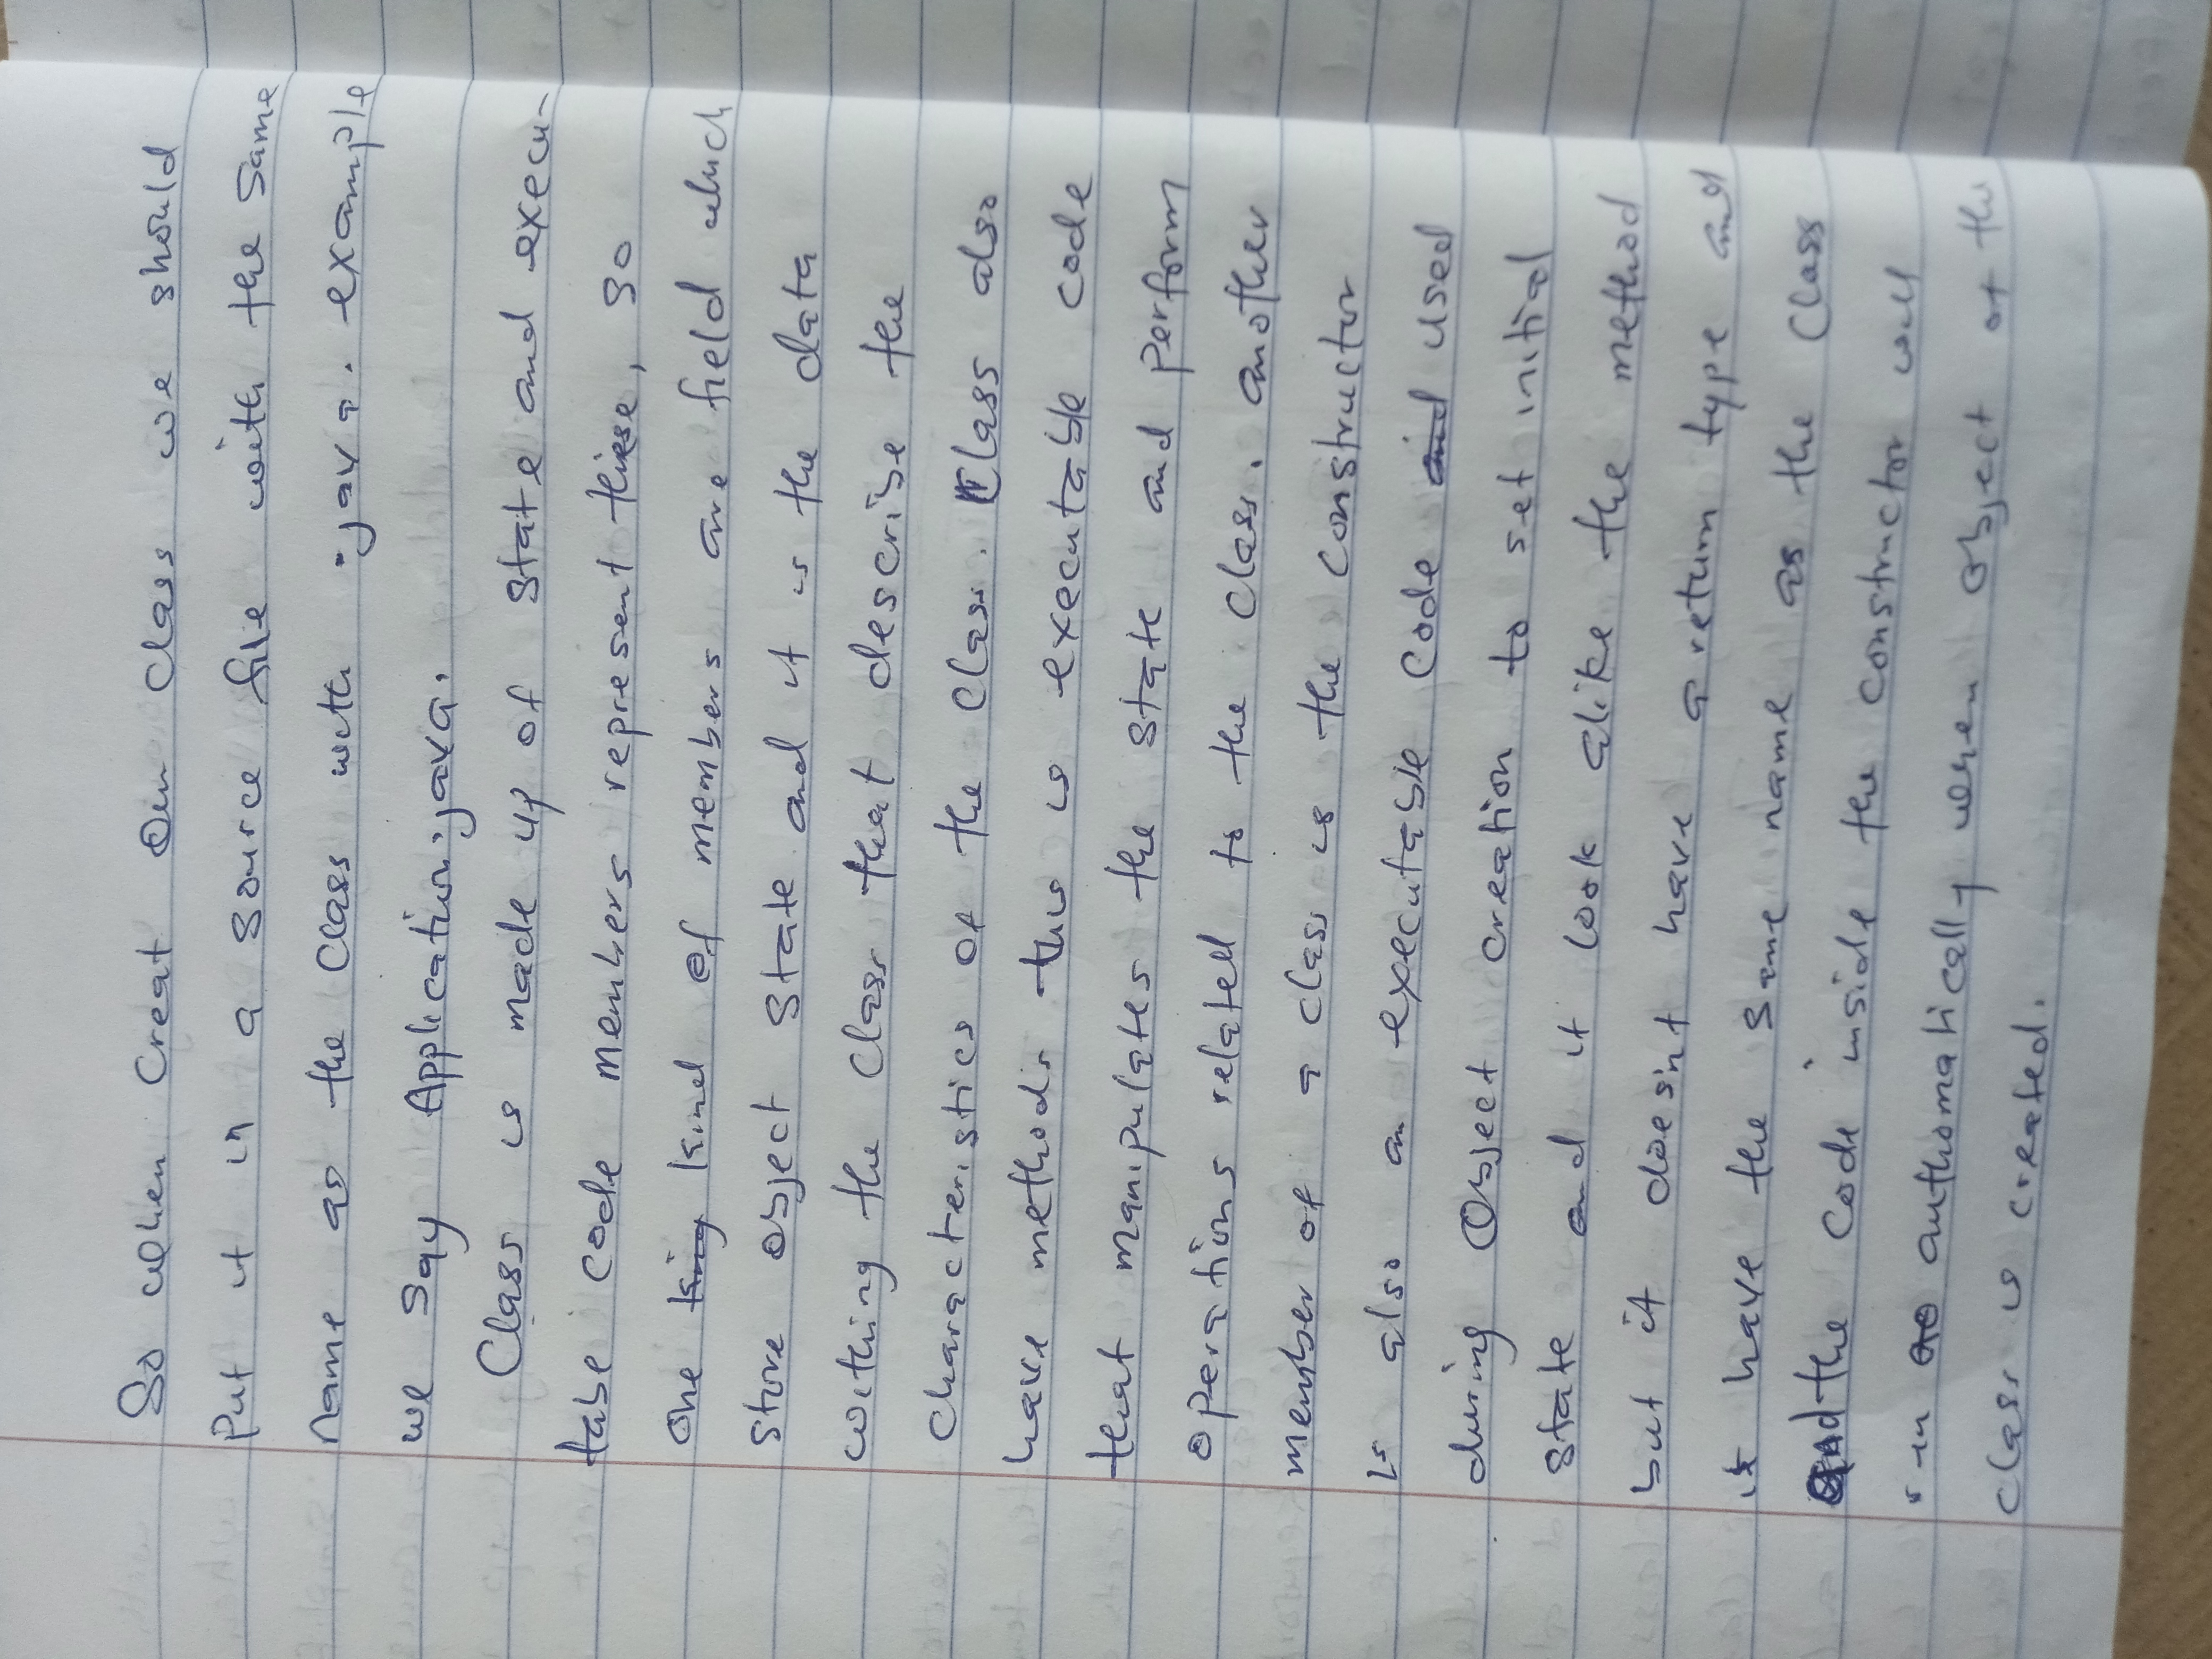 So when Creat our Class we should
Put it in a source file with the same
name as the Class with .java. example
we say Application.java.
Class is made up of State and execu-
table code members represent these, so
one king kind of members are field which
store object state and it is the data
withing the class that describe the
characteristics of the class. Class also
have methods this is executable code
that manipulates the state and perform
operations related to the class. another
member of a class is the constructor
is also an executable code and used
during Object creation to set initial
state and it look alike the method
but it doesn't have a return type and
it have the same name as the Class
And the code inside the constructor will
run authomatically when object of the
class is created.